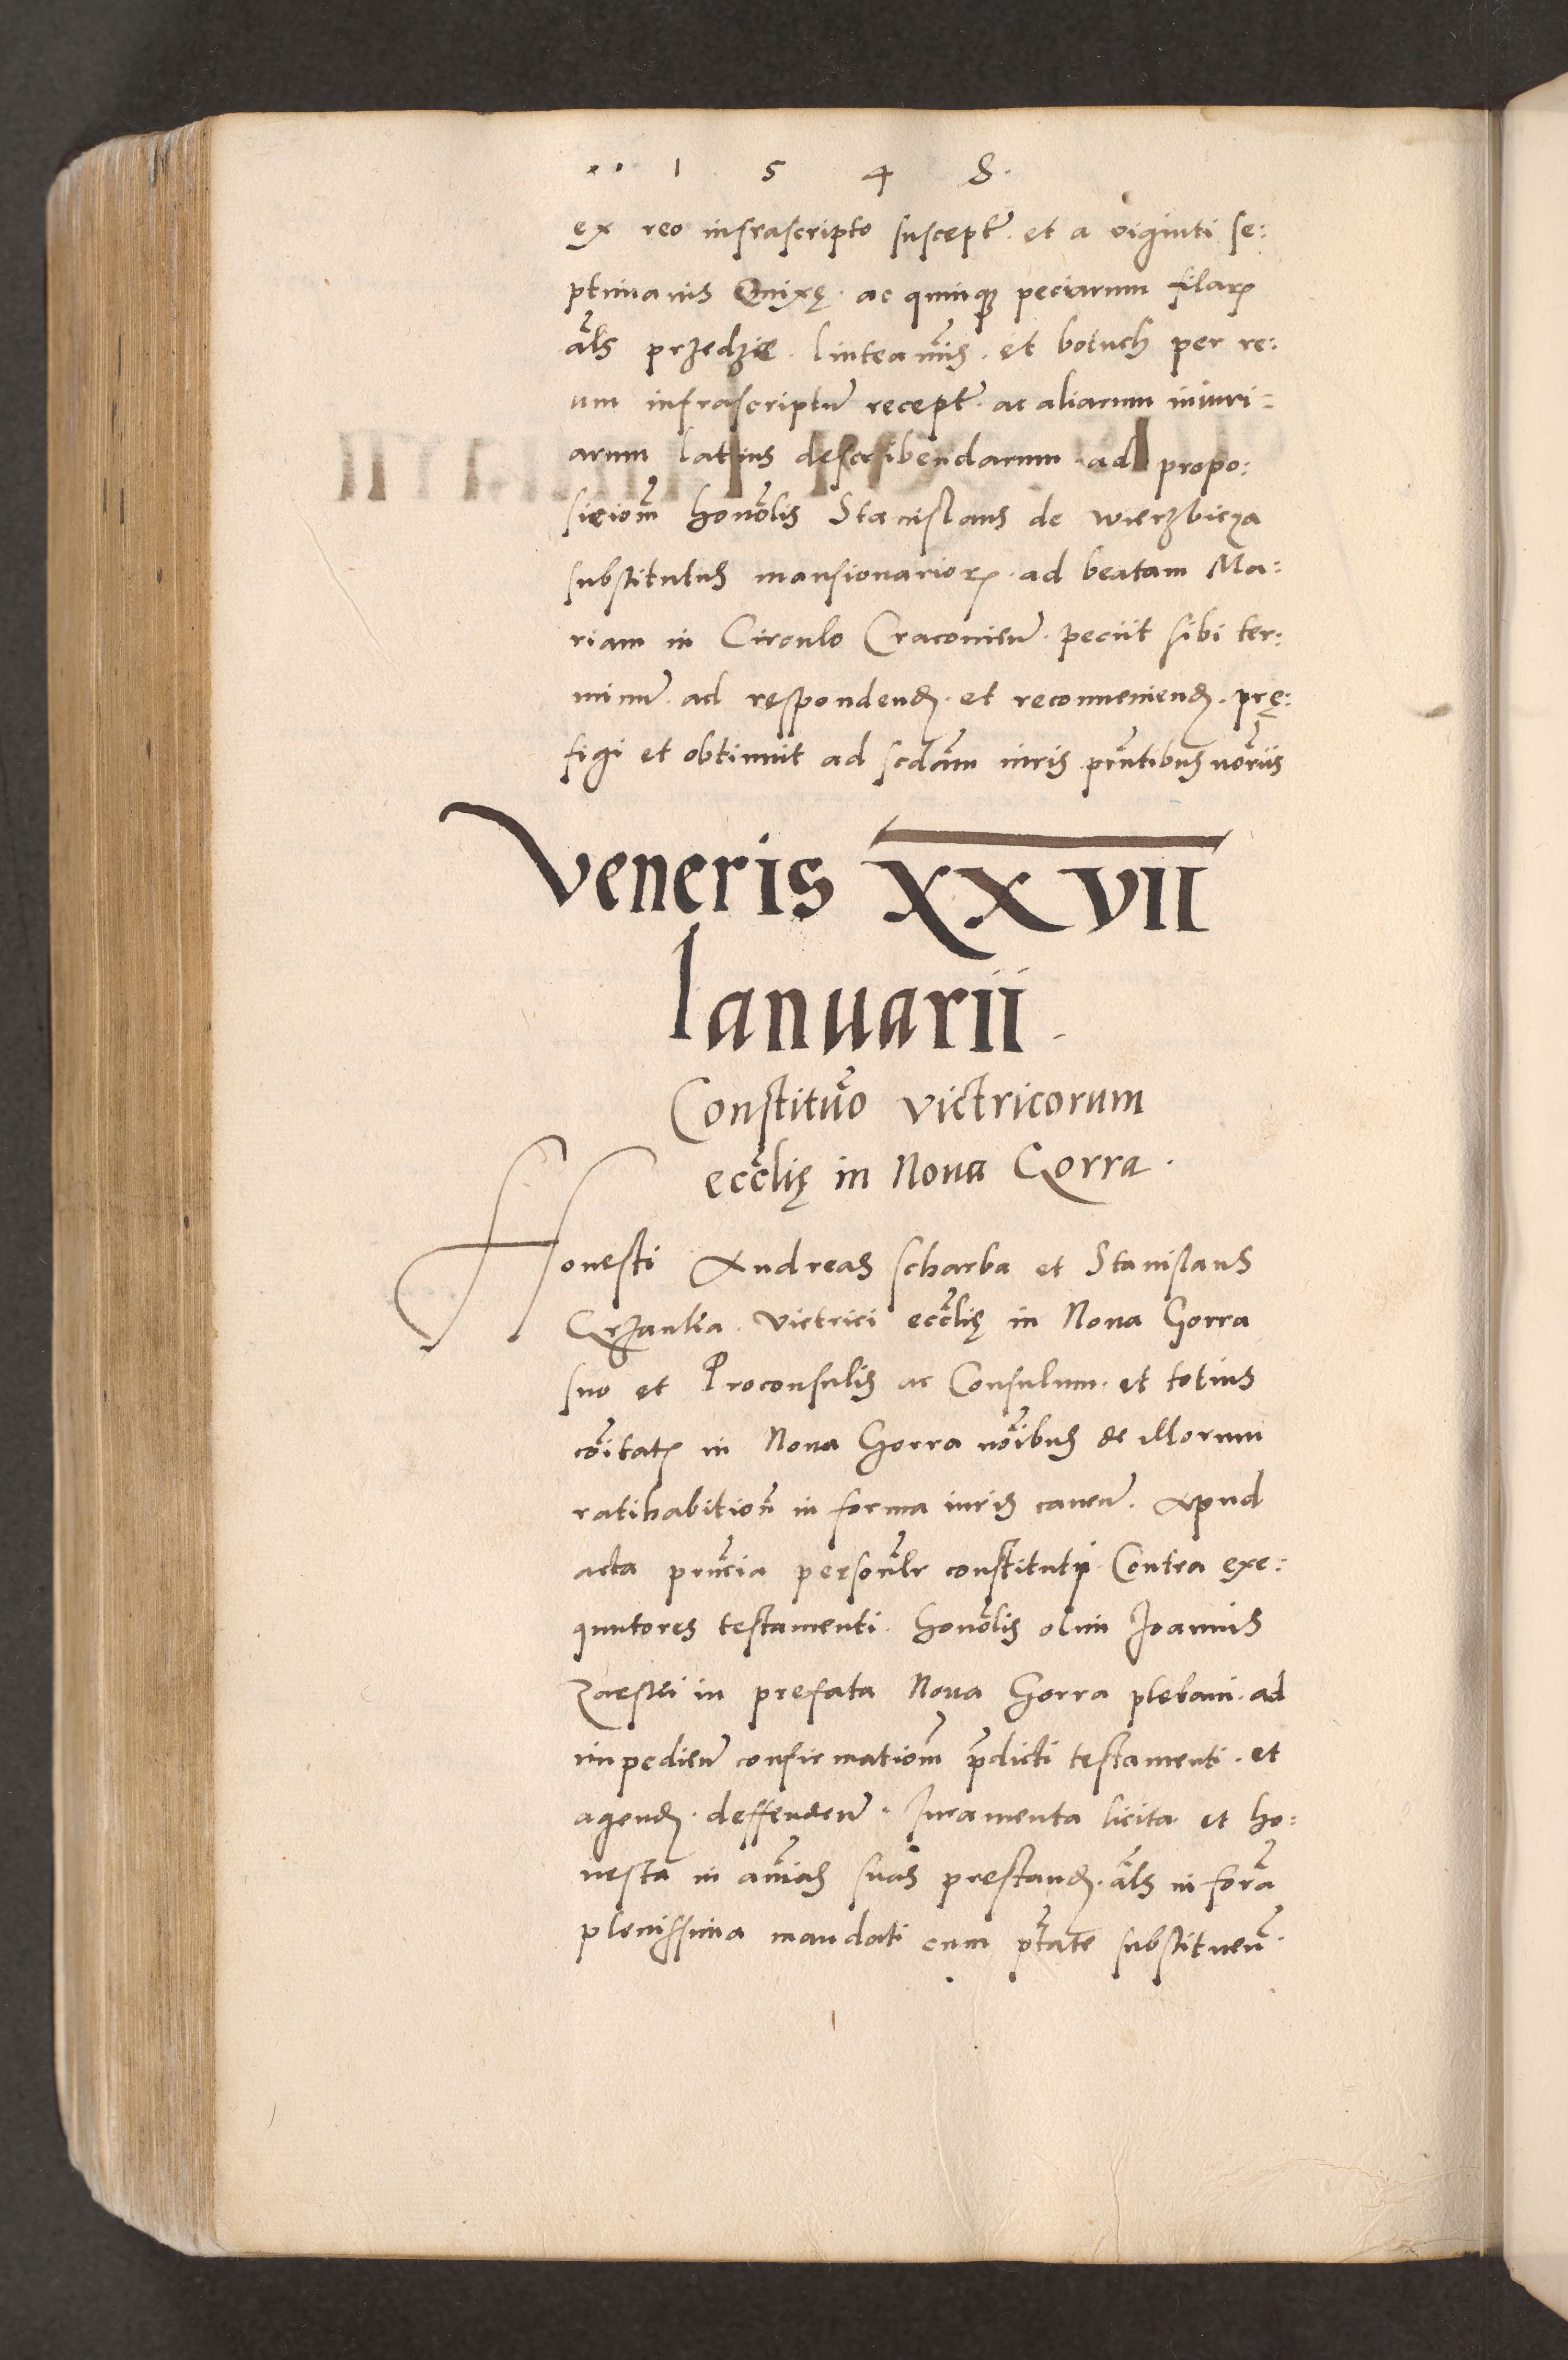 1 5 4 8.
ex reo infrascripto suscept̃. et a viginti se:
ptimanis Enixę. ac quinq̃ peciarum filaꝝ
al̃s przedzie. linteamis̃. et botuch per re:
um infrascriptũ recept̃. ac aliarum iniuri=
arum latius describendarum. ad propo:
siciom̃ honol̃is Stanislaus de wierzbicza
substitutus mansionarioꝝ. ad beatam Ma:
riam in Circulo Cracovień. peciit sibi ter:
minũ. ad respondenđ. et reconveniendđ. prę:
figi et obtinuit ad scdãm iuris prñtibus nor̃iis
Veneris XXVII
Ianuarii.
Constituõ victricorum
eccl̃ię in Nova Gorra.
Honesti Andreas scharba et Stanislaus
victrici eccl̃ię in Nova Gorra
suo et Proconsulis ac Consulum. et totius
cõitatꝭ in Nova Gorra noĩbus de illorum
ratihabitioñ in forma iuris caveñ. Apud
acta prñcia personl̃r constituti. Contra exe:
quutores testamenti. honol̃is olim Joannis
in prefata Nova Gorra plebani. ad
impedień confirmatiom̃ p̃dicti testamenti. et
agenđ. deffendeñ. Iuramenta licita et ho:
nesta in aĩas suas prestanđ. al̃s in for̃a
plenissima mandati cum ptãte substitueñ.